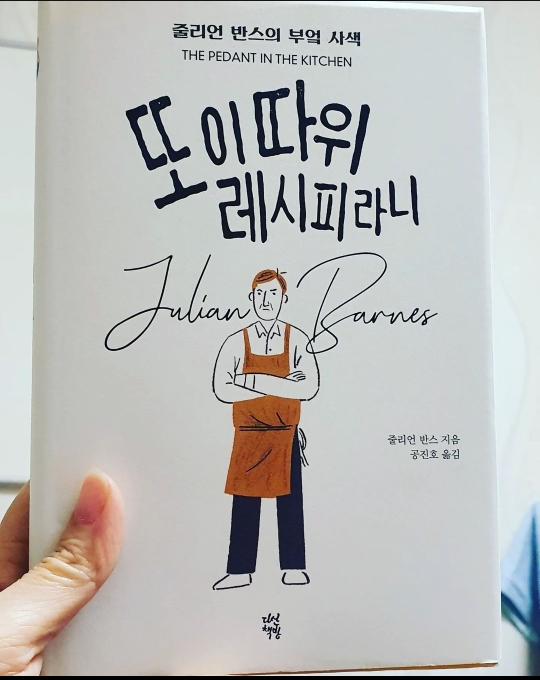 줄리언 반스의 부엌 사색
THE PEDANT IN THE KITCHEN
또 이 따위
레시피라니
Julian Barnes
줄리언 반스 지음
공진호 옮김
다산
책방